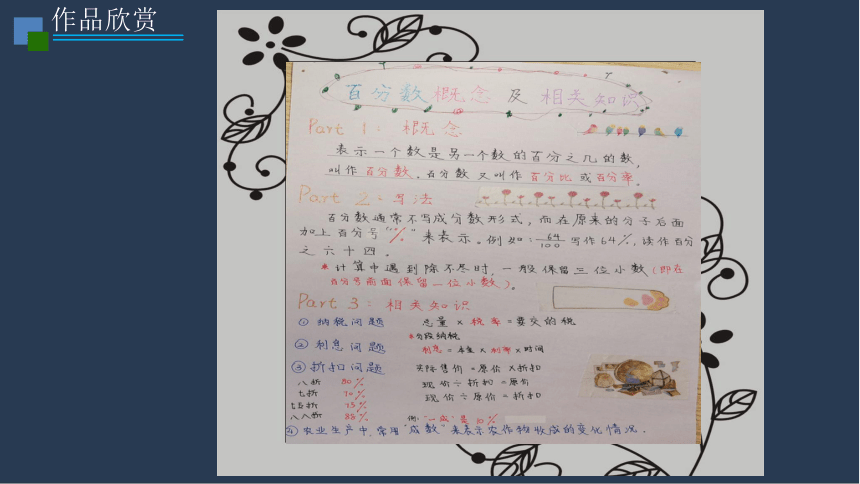 作品欣赏
百分数概念及相关知识
Part 1：概念
表示一个数是另一个数的百分之几的数,
叫作百分数。百分数又叫作百分比或百分率。
Part 2：写法
百分数通常不写成分数形式，而在原来的分子后面
加上百分号“%”来表示。例如：64/100 写作64%，读作百分
之六十四。
*计算中遇到除不尽时,一般保留三位小数(即在
百分号前面保留一位小数)。
Part 3：相关知识
① 纳税问题 总量×税率=要交的税
*分段纳税
② 利息问题 利息=本金×利率×时间
③ 折扣问题 实际售价=原价×折扣
八折 80% 现价÷折扣=原价
七折 70% 现价÷原价=折扣
七五折 75%
八八折 88% 例:“一成”是10%
④ 农业生产中,常用“成数”来表示农作物收成的变化情况.